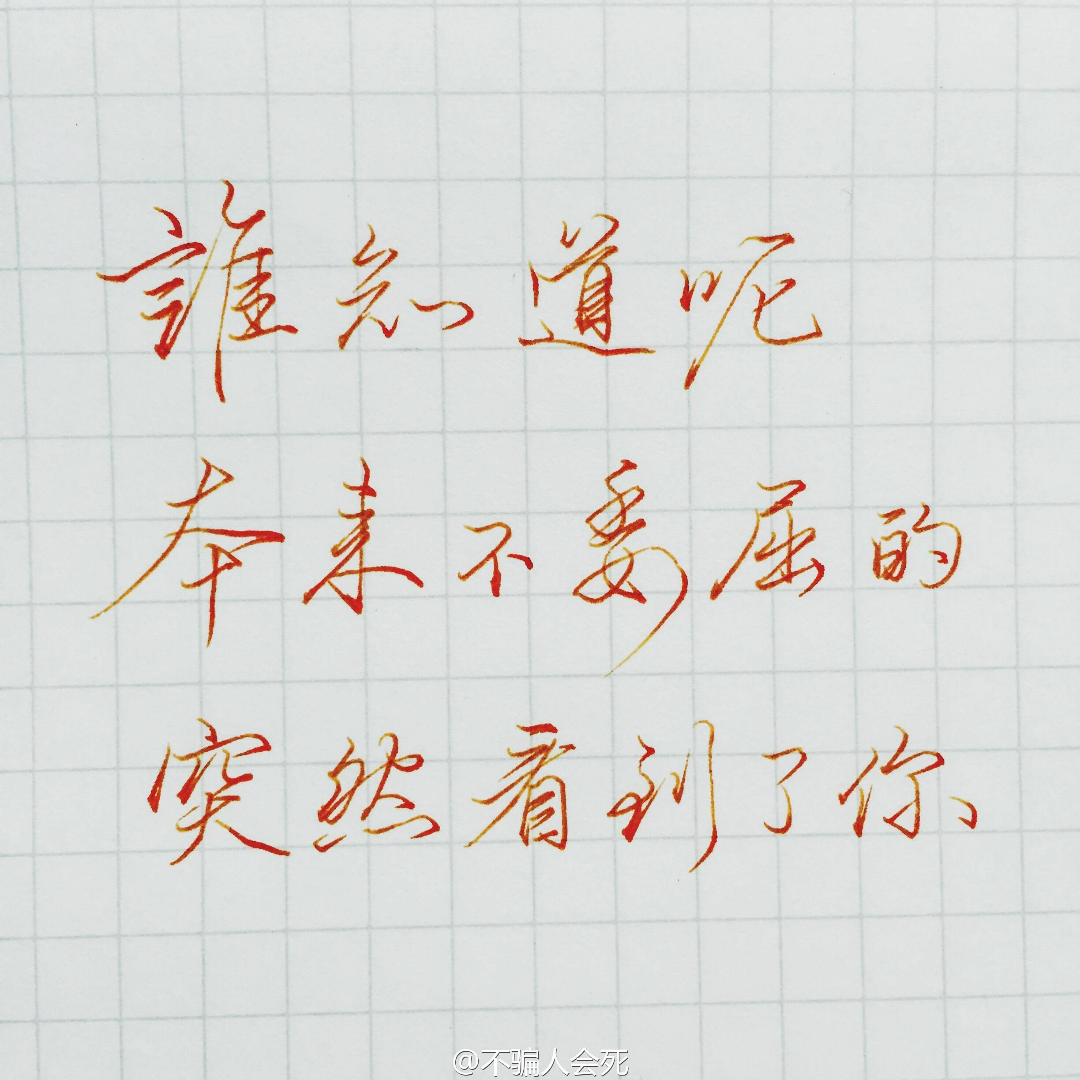 誰知道呢
本来不委屈的
突然看到了你
@不骗人会死